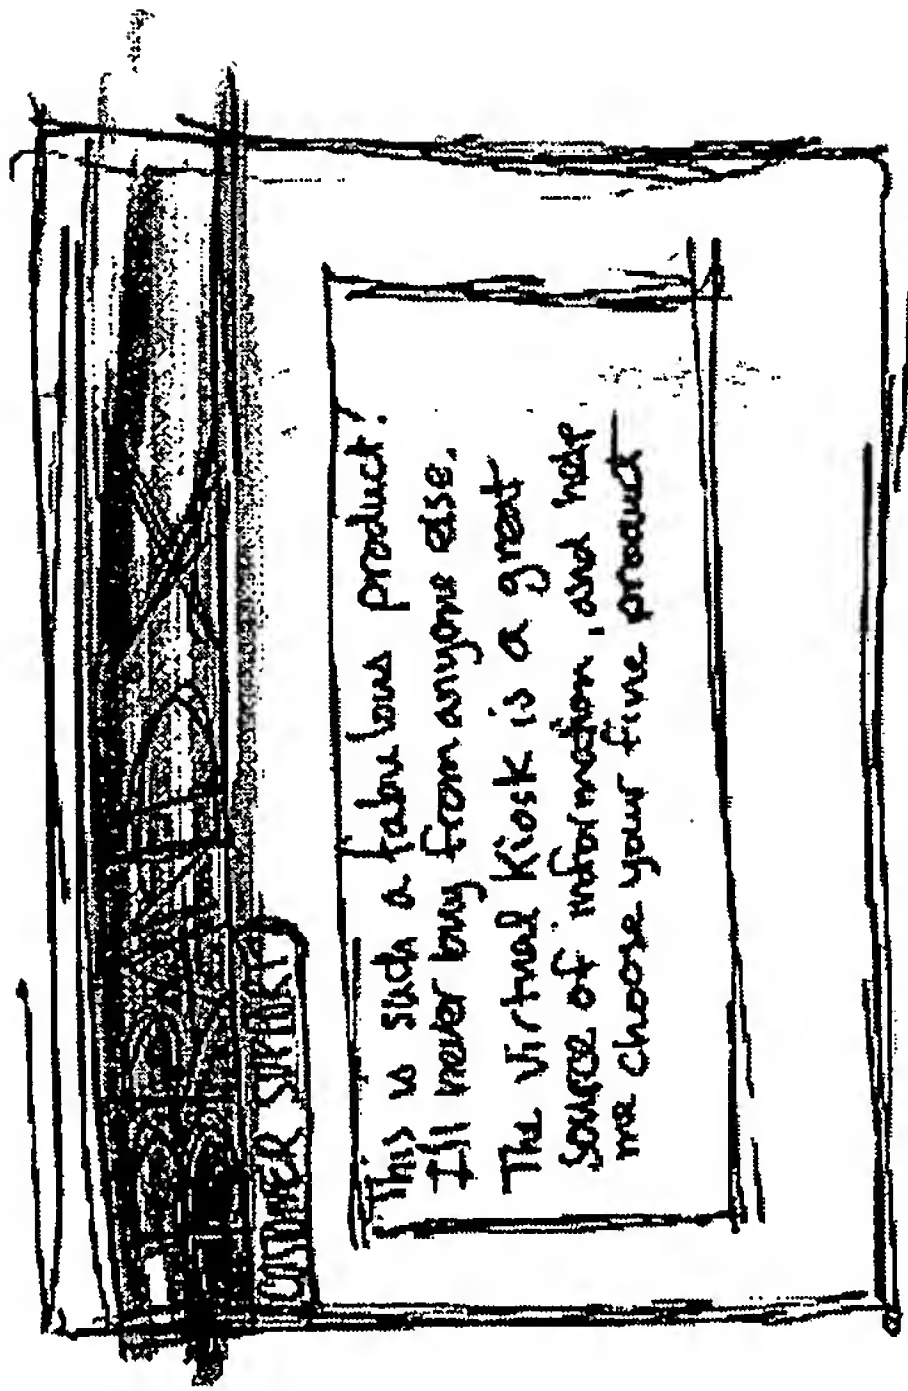 CUSTOMER SUPPORT
This is such a fabulous product!
I'll never buy from anyone else.
The virtual kiosk is a great
source of information, and help
me choose your fine product